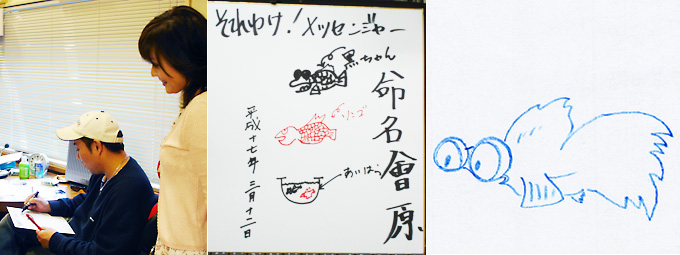 それゆけ！メッセンジャー
黒ちゃん
リンゴ
あいはら
命名會原
平成十七年 三月十二日